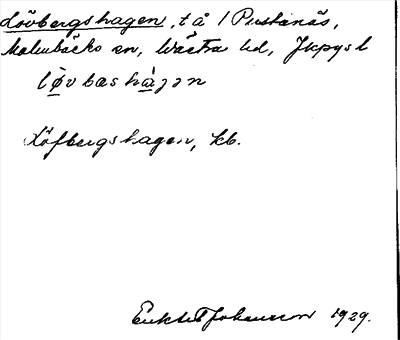 Lövbergshagen, t å 1 Prästanäs,
Malmbäcks sn, Västra hd, Jkpgs l
løvbæshàgən
Löfbergshagen, kb.
Johansson 1929.